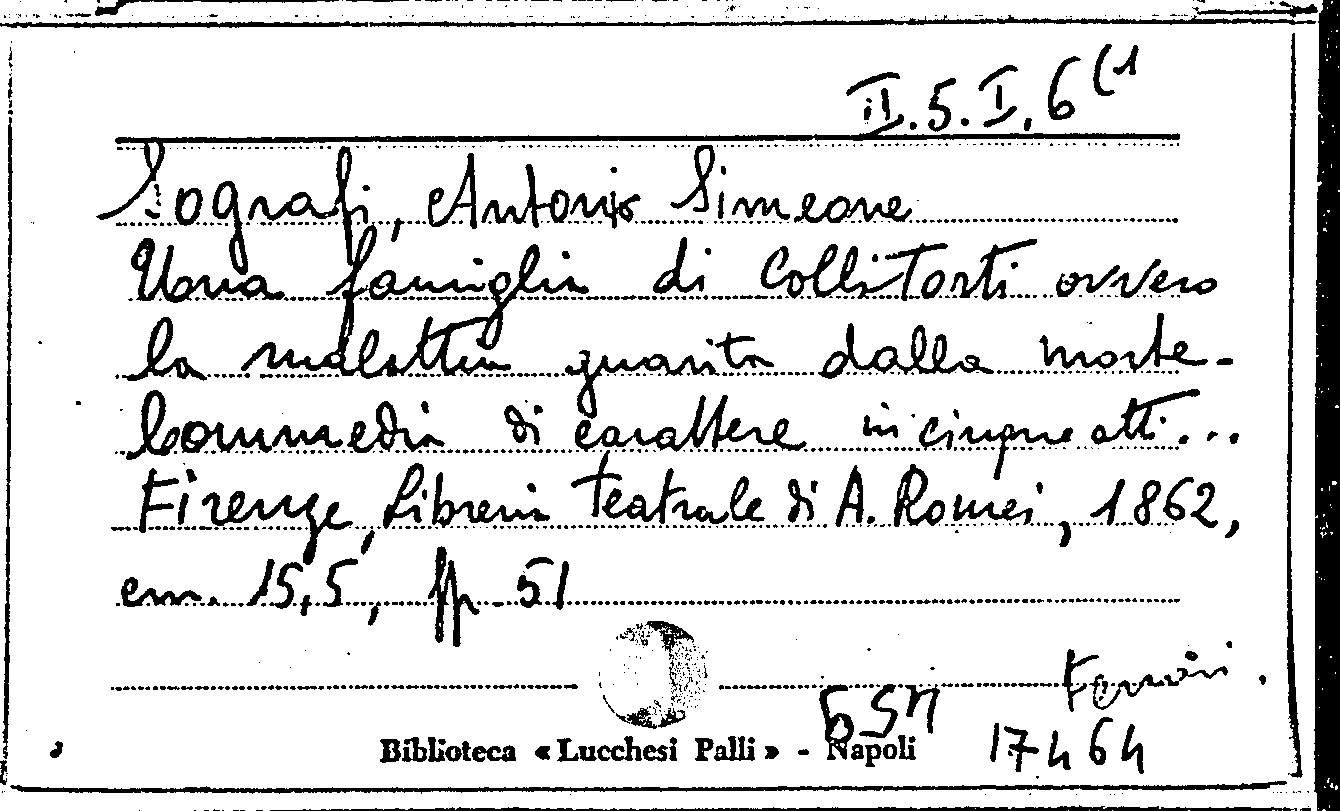 II.5.I,6(1
Sografi, Antonio Simeone
Una famiglia di Collitorti ovvero
la malattia guarita dalla morte-
Commedia di carattere in cinque atti...
Firenze, Libreria Teatrale di A. Romei, 1862,
cm. 15,5, pp. 51
Ferrari.
17464
Biblioteca « Lucchesi Palli » - Napoli